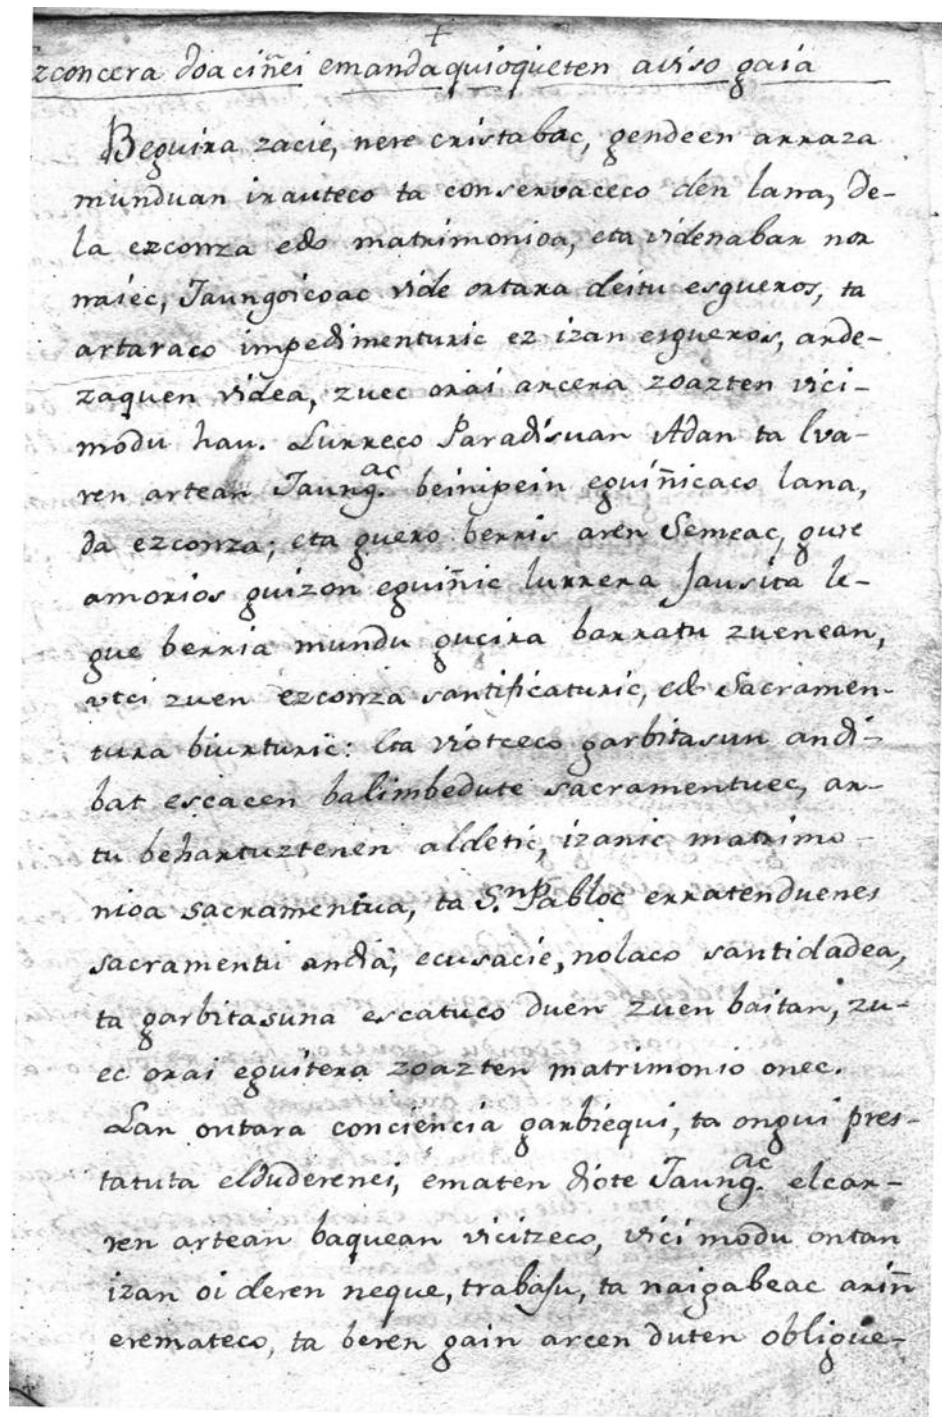 +
zconcera doaciñei emandaquioqueten aviso gaia
Beguira zacie, nere cristabac, gendeen arraza
munduan irauteco ta conservaceco den lana, de-
la ezconza edo matrimonioa, eta videnabar nor
naiec, Jaungoicoac vide ortara deitu esgueros, ta
artaraco impedimenturic ez izan esgueros, arde-
zaquen videa, zuec orai arcera zoazten vici-
modu hau. Lurreco Paradisuan Adan ta Eva-
ren artean Jaung.ac beinipein eguiñicaco lana,
da ezconza; eta guero berris aren Semeac, gure
amorios guizon eguiñic lurrera jausita le-
gue berria mundu gucira barratu zuenean,
utci zuen ezconza santificaturic, edo Sacramen-
tura biurturic: Eta viotceco garbitasun andi-
bat escacen balimbedute sacramentuec, ar-
tu behartuztenen aldetic, izanic matrimo-
nioa sacramentua, ta S.n Pabloc erratenduenes
sacramentu andia, ecusacie, nolaco santidadea,
ta garbitasuna escatuco duen zuen baitan, zu-
ec orai eguitera zoazten matrimonio onec.
Lan ontara conciencia garbiequi, ta ongui pres-
tatuta elduderenei, ematen diote Jaung.ac elcar-
ren artean baquean vicitzeco, vici modu ontan
izan oi deren neque, trabaju, ta naigabeac ariñ
eremateco, ta beren gain arcen duten obligue-